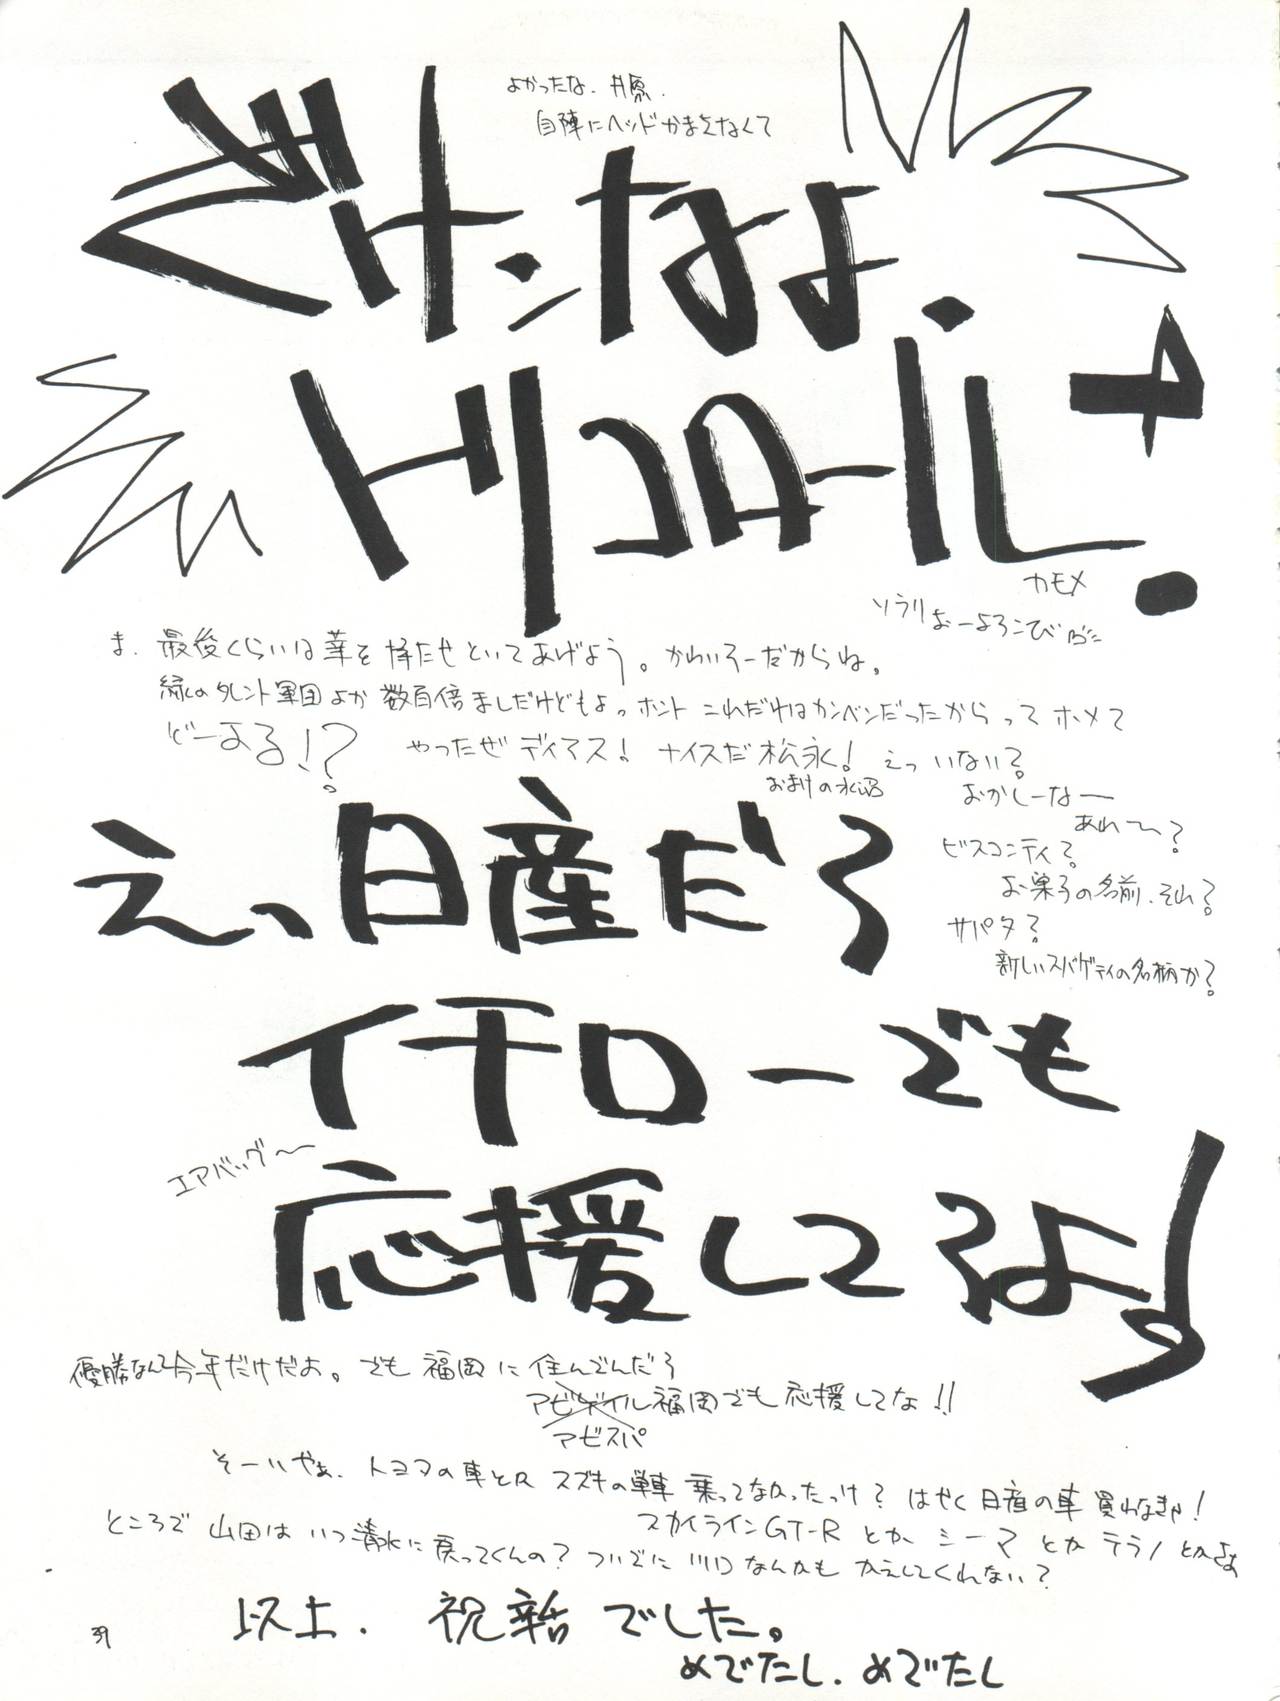 よかったな、井原、
自陣にヘッドかまさなくて
ざけンなよ、
トリコロール!
カモメ
ソラリよーよろこび
ま、最後くらいは華を持たせといてあげよう。かわいそーだからね。
緑のタレント軍団よか数百倍ましだけどもよっホントこれだけはカンベンだったからってホメて
どーする!?
やったぜディアス!ナイスだ松永!えっいない?
おまけの水沼
おかしーなー
あれ〜?
ビスコンティ?
お菓子の名前、それ?
サパタ?
新しいスパゲティの名柄か?
えっ日産だろ
イチローでも
エアバッグ〜
応援してろよ!
優勝なんて今年だけだよ。でも福岡に住んでんだろ
アビゲイル福岡でも応援してな!!
アビスパ
そーいやぁ、トヨタの車とR スズキの単車乗ってなかったっけ?はやく日産の車買わなきゃ!
スカイラインGT-Rとか、シーマとかテラノとかよぉ
ところで山田はいつ清水に戻ってくんの?ついでに川口なんかもかえしてくれない?
以上、祝辞でした。
めでたし、めでたし
39